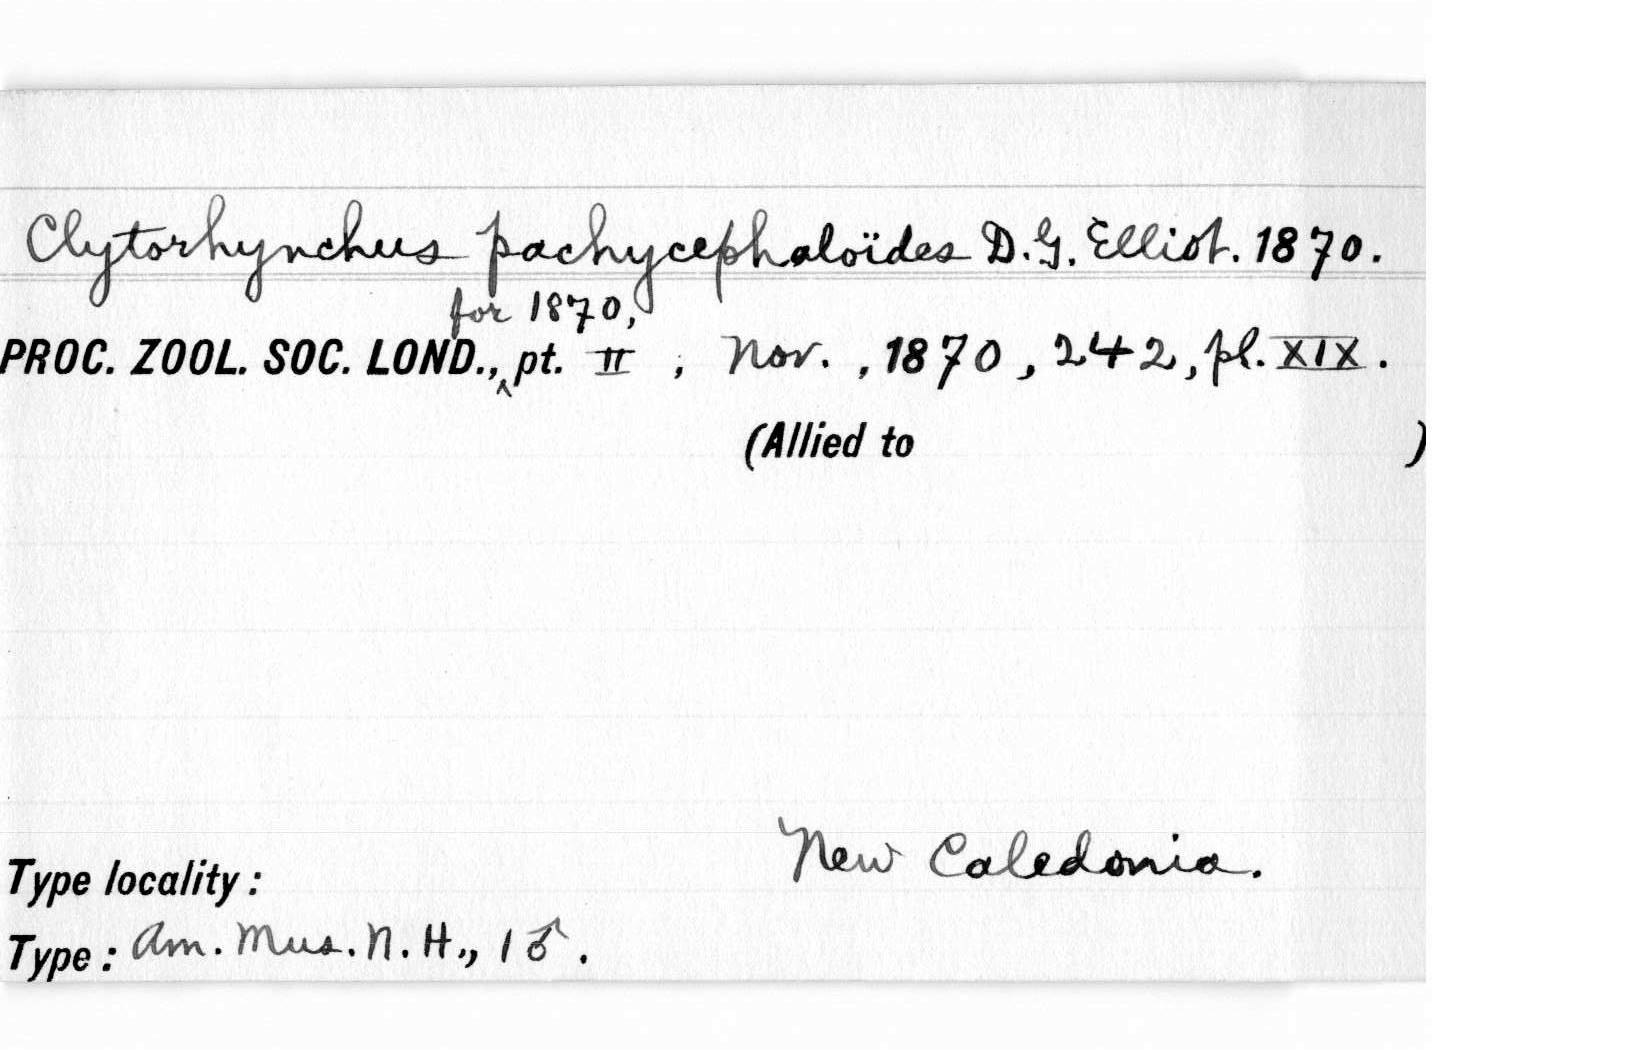 Clytorhynchus pachycephaloïdes D.G. Elliot. 1870.
for 1870,
PROC. ZOOL. SOC. LOND., ^ pt. II ; Nov. , 1870 , 242, pl. XIX .
(Allied to )
New Caledonia.
Type locality :
Type : Am. Mus. N. H., 1 ♂ .